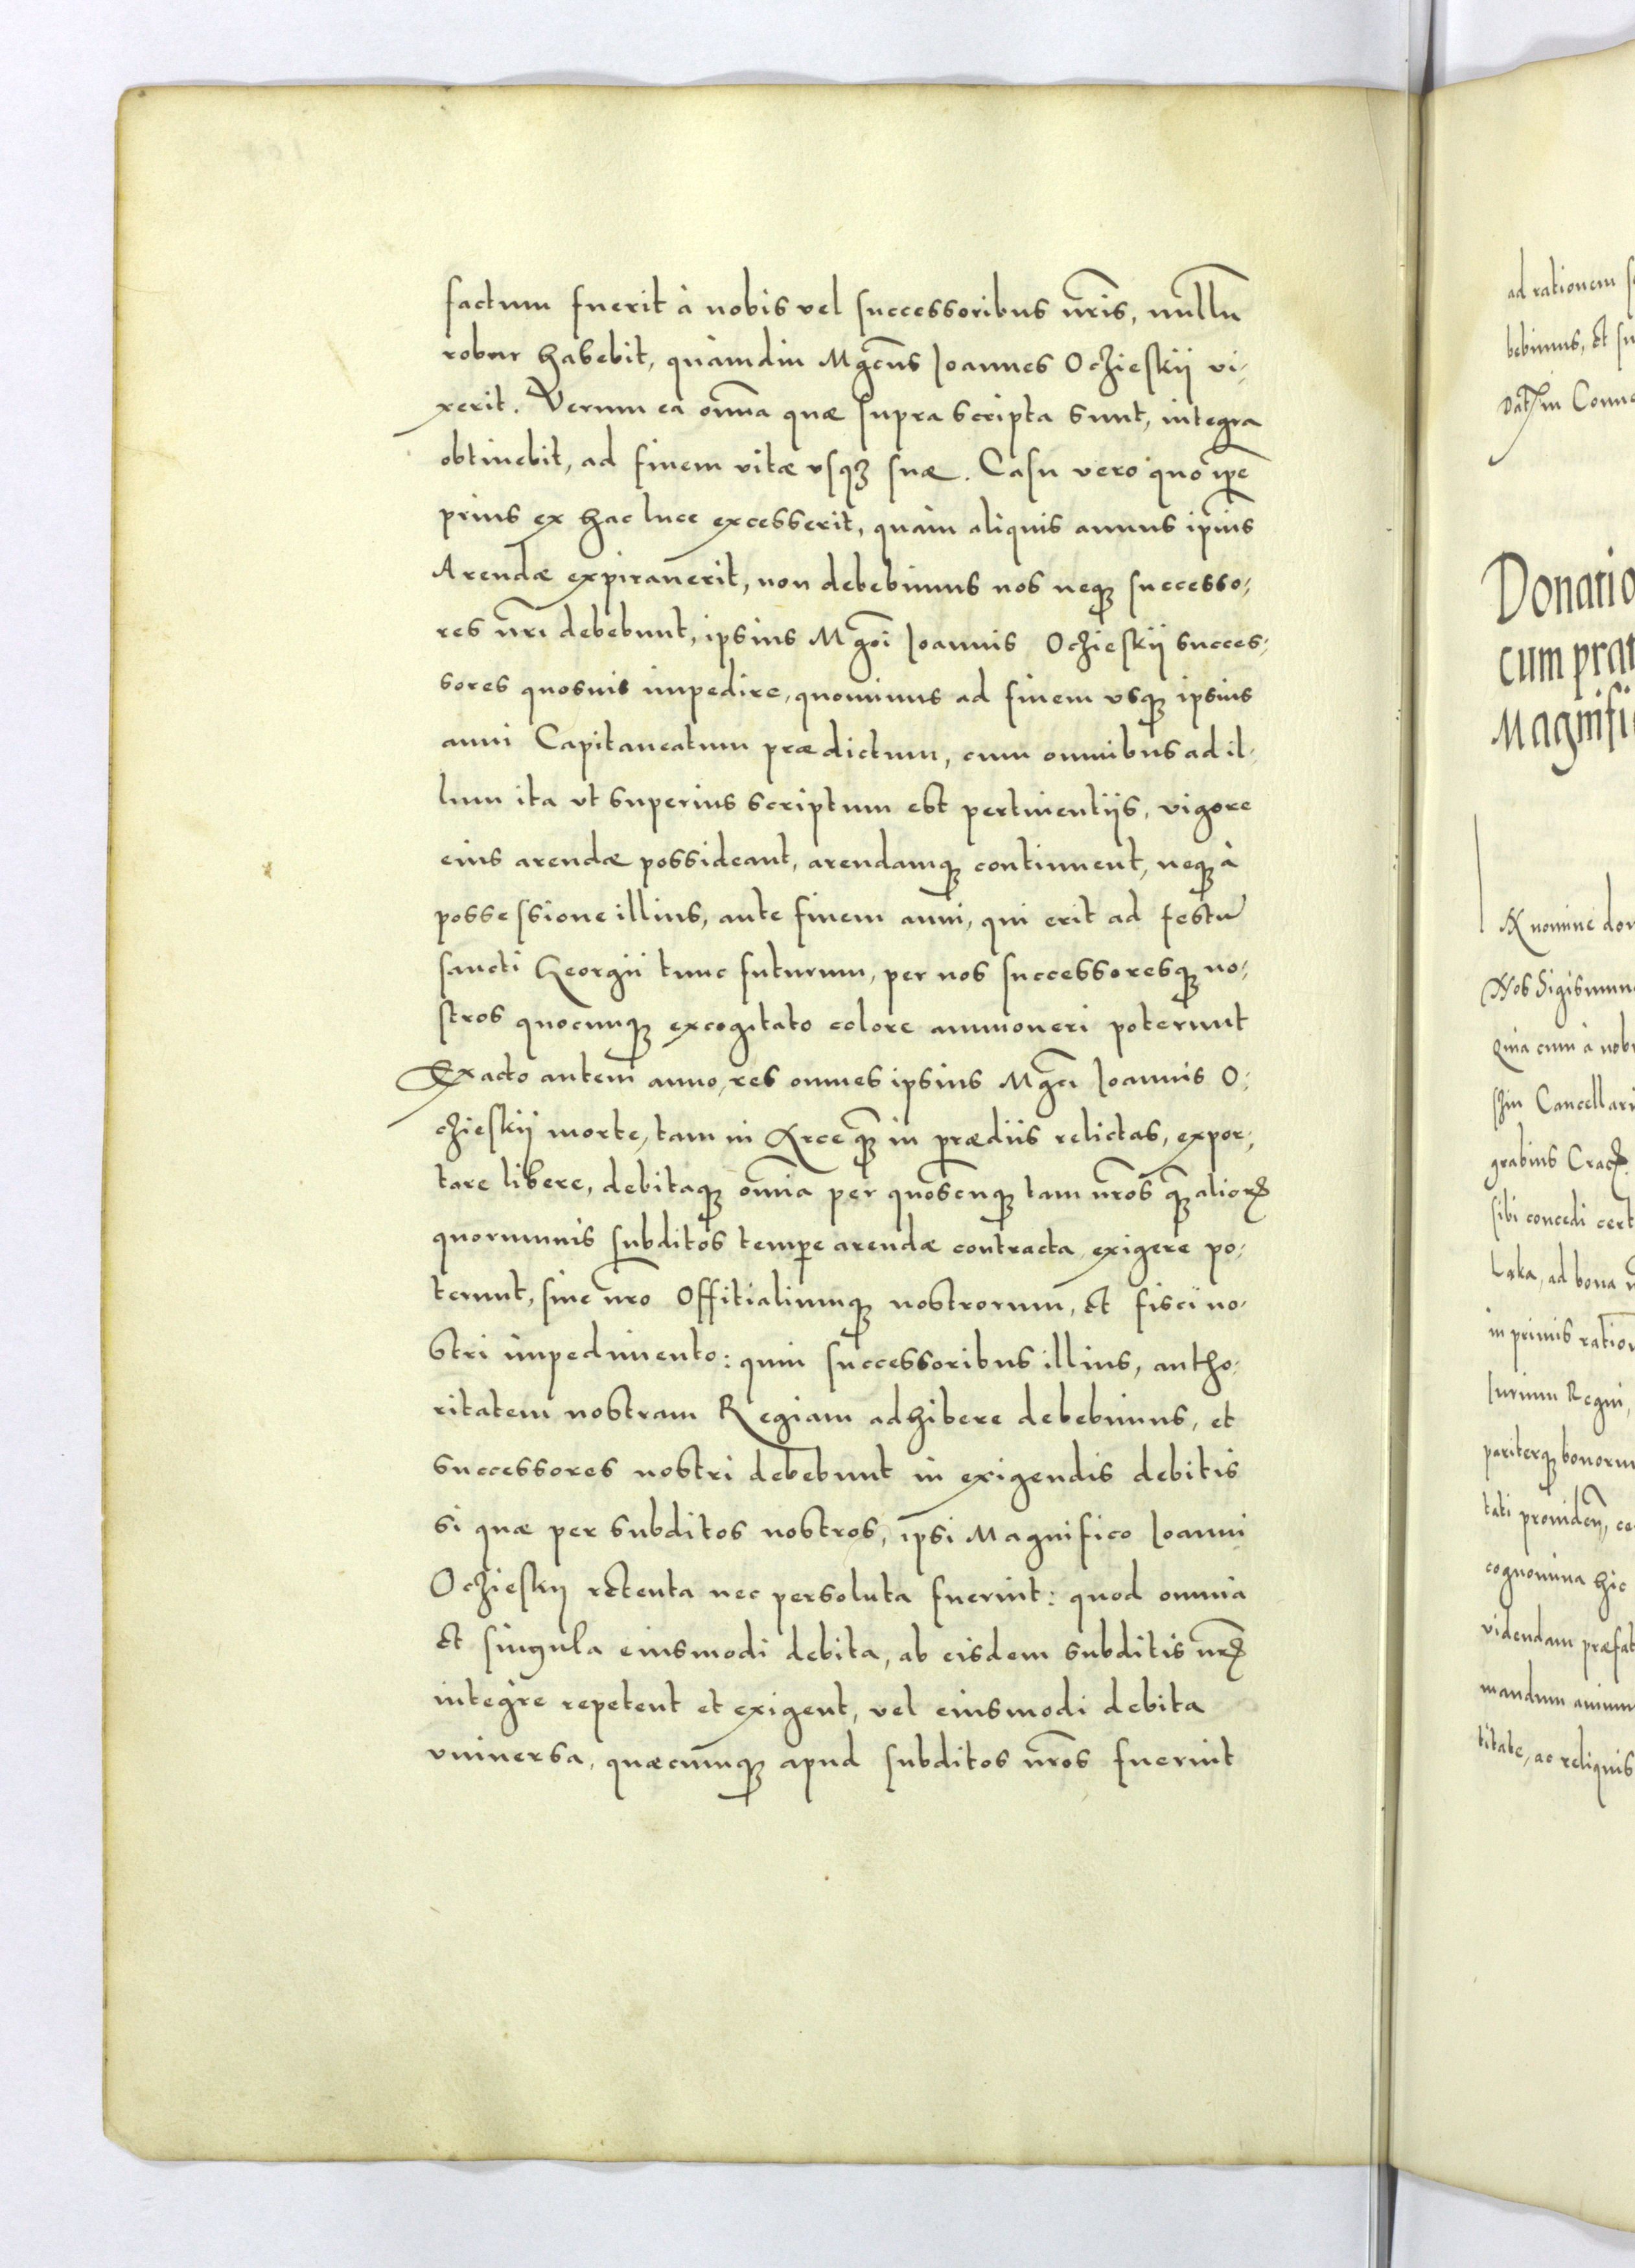 factum fuerit à nobis vel successoribus nr̃is, nullũ
robur habebit, quàmdiu Mgcũs Joannes Oczieskij vi-
xerit. Verum ea om̃ia quæ supra scripta sunt, integra
obtinebit, ad finem vitæ vsqꝫ suæ. Casu vero quo ip̃e
prius ex hac luce excesserit, quàm aliquis annus ip̃ius
Arendæ expirauerit, non debebimus nos neqꝫ successo-
res nr̃i debebunt, ipsius Mgci Joannis Oczieskij succes-
sores quosuis impedire, quominus ad finem vsqꝫ ipsius
anni Capitaneatum prædictum, cum omnibus ad il-
lum ita vt superius scriptum est pertinentijs, vigore
eius arendæ possideant, arendamqꝫ continuent, neqꝫ à
possessione illius, ante finem anni, qui erit ad festũ
sancti Georgii tunc futurum, per nos successoresqꝫ no-
stros quocunqꝫ excogitato colore ammoneri poterunt
Exacto autem anno, res omnes ipsius Mgci Joannis O-
czieskij morte, tam in Arce qꝫ in prædiis relictas, expor-
tare libere, debitaqꝫ om̃ia per quoscunqꝫ tam nr̃os qꝫ alioꝝ
quorumuis subditos tempe arendæ contracta exigere po-
terunt, sine nr̃o Offitialiumqꝫ nostrorum, et fisci no-
stri impedimento: quin successoribus illius, autho-
ritatem nostram Regiam adhibere debebimus, et
successores nostri debebunt in exigendis debitis
si quæ per subditos nostros, ipsi Magnifico Joanni
Oczieskij retenta nec persoluta fuerint: quod omnia
et singula eiusmodi debita, ab eisdem subditis nr̃ꝝ
integre repetent et exigent, vel eiusmodi debita
vniuersa, quæcunqꝫ apud subditos nr̃os fuerint
ad rationem
bebimus, et
Dat̃ in
Donatio
cum
nomine
Nos
Quia cum à
Cancellari
grabius Crac̃
sibi concedi
ad bona
in primis
Jurium Regni,
pariterqꝫ
tati
cognomina hic
videndam
mandum
titate, ac reliquis